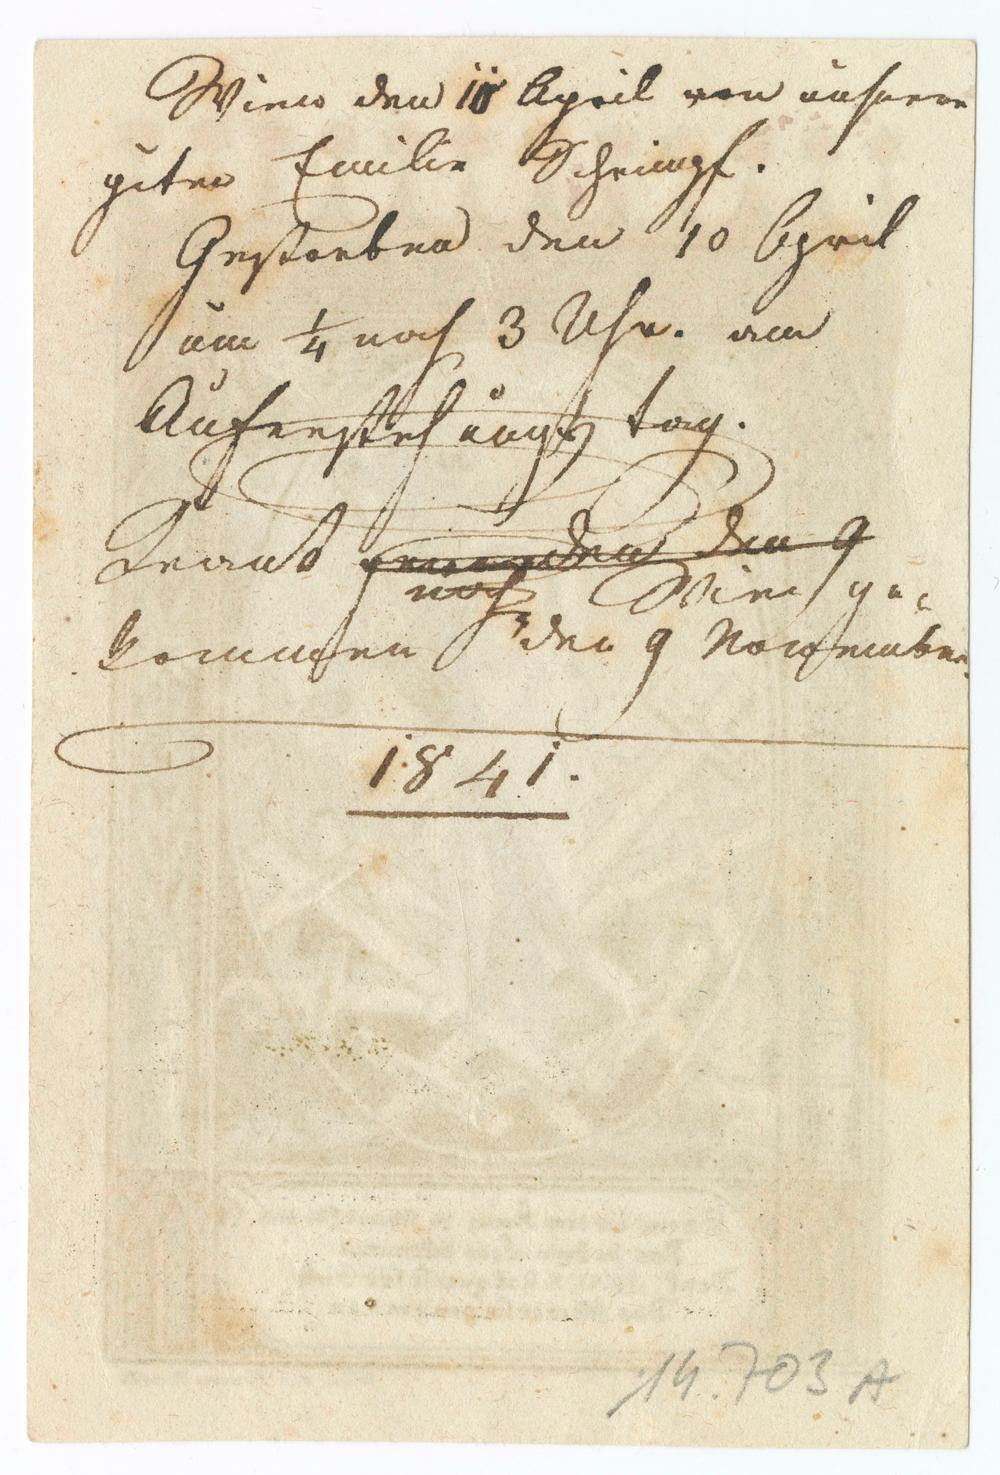 Wien den 10 April von unserer
guten Emilie Schrimpf.
Gestorben den 10 April
um ¼ nach 3 Uhr. am
Auferstehungs tag.
Krank den 9
nach Wien ge-
kommen den 9 November
1841.
14.703 A